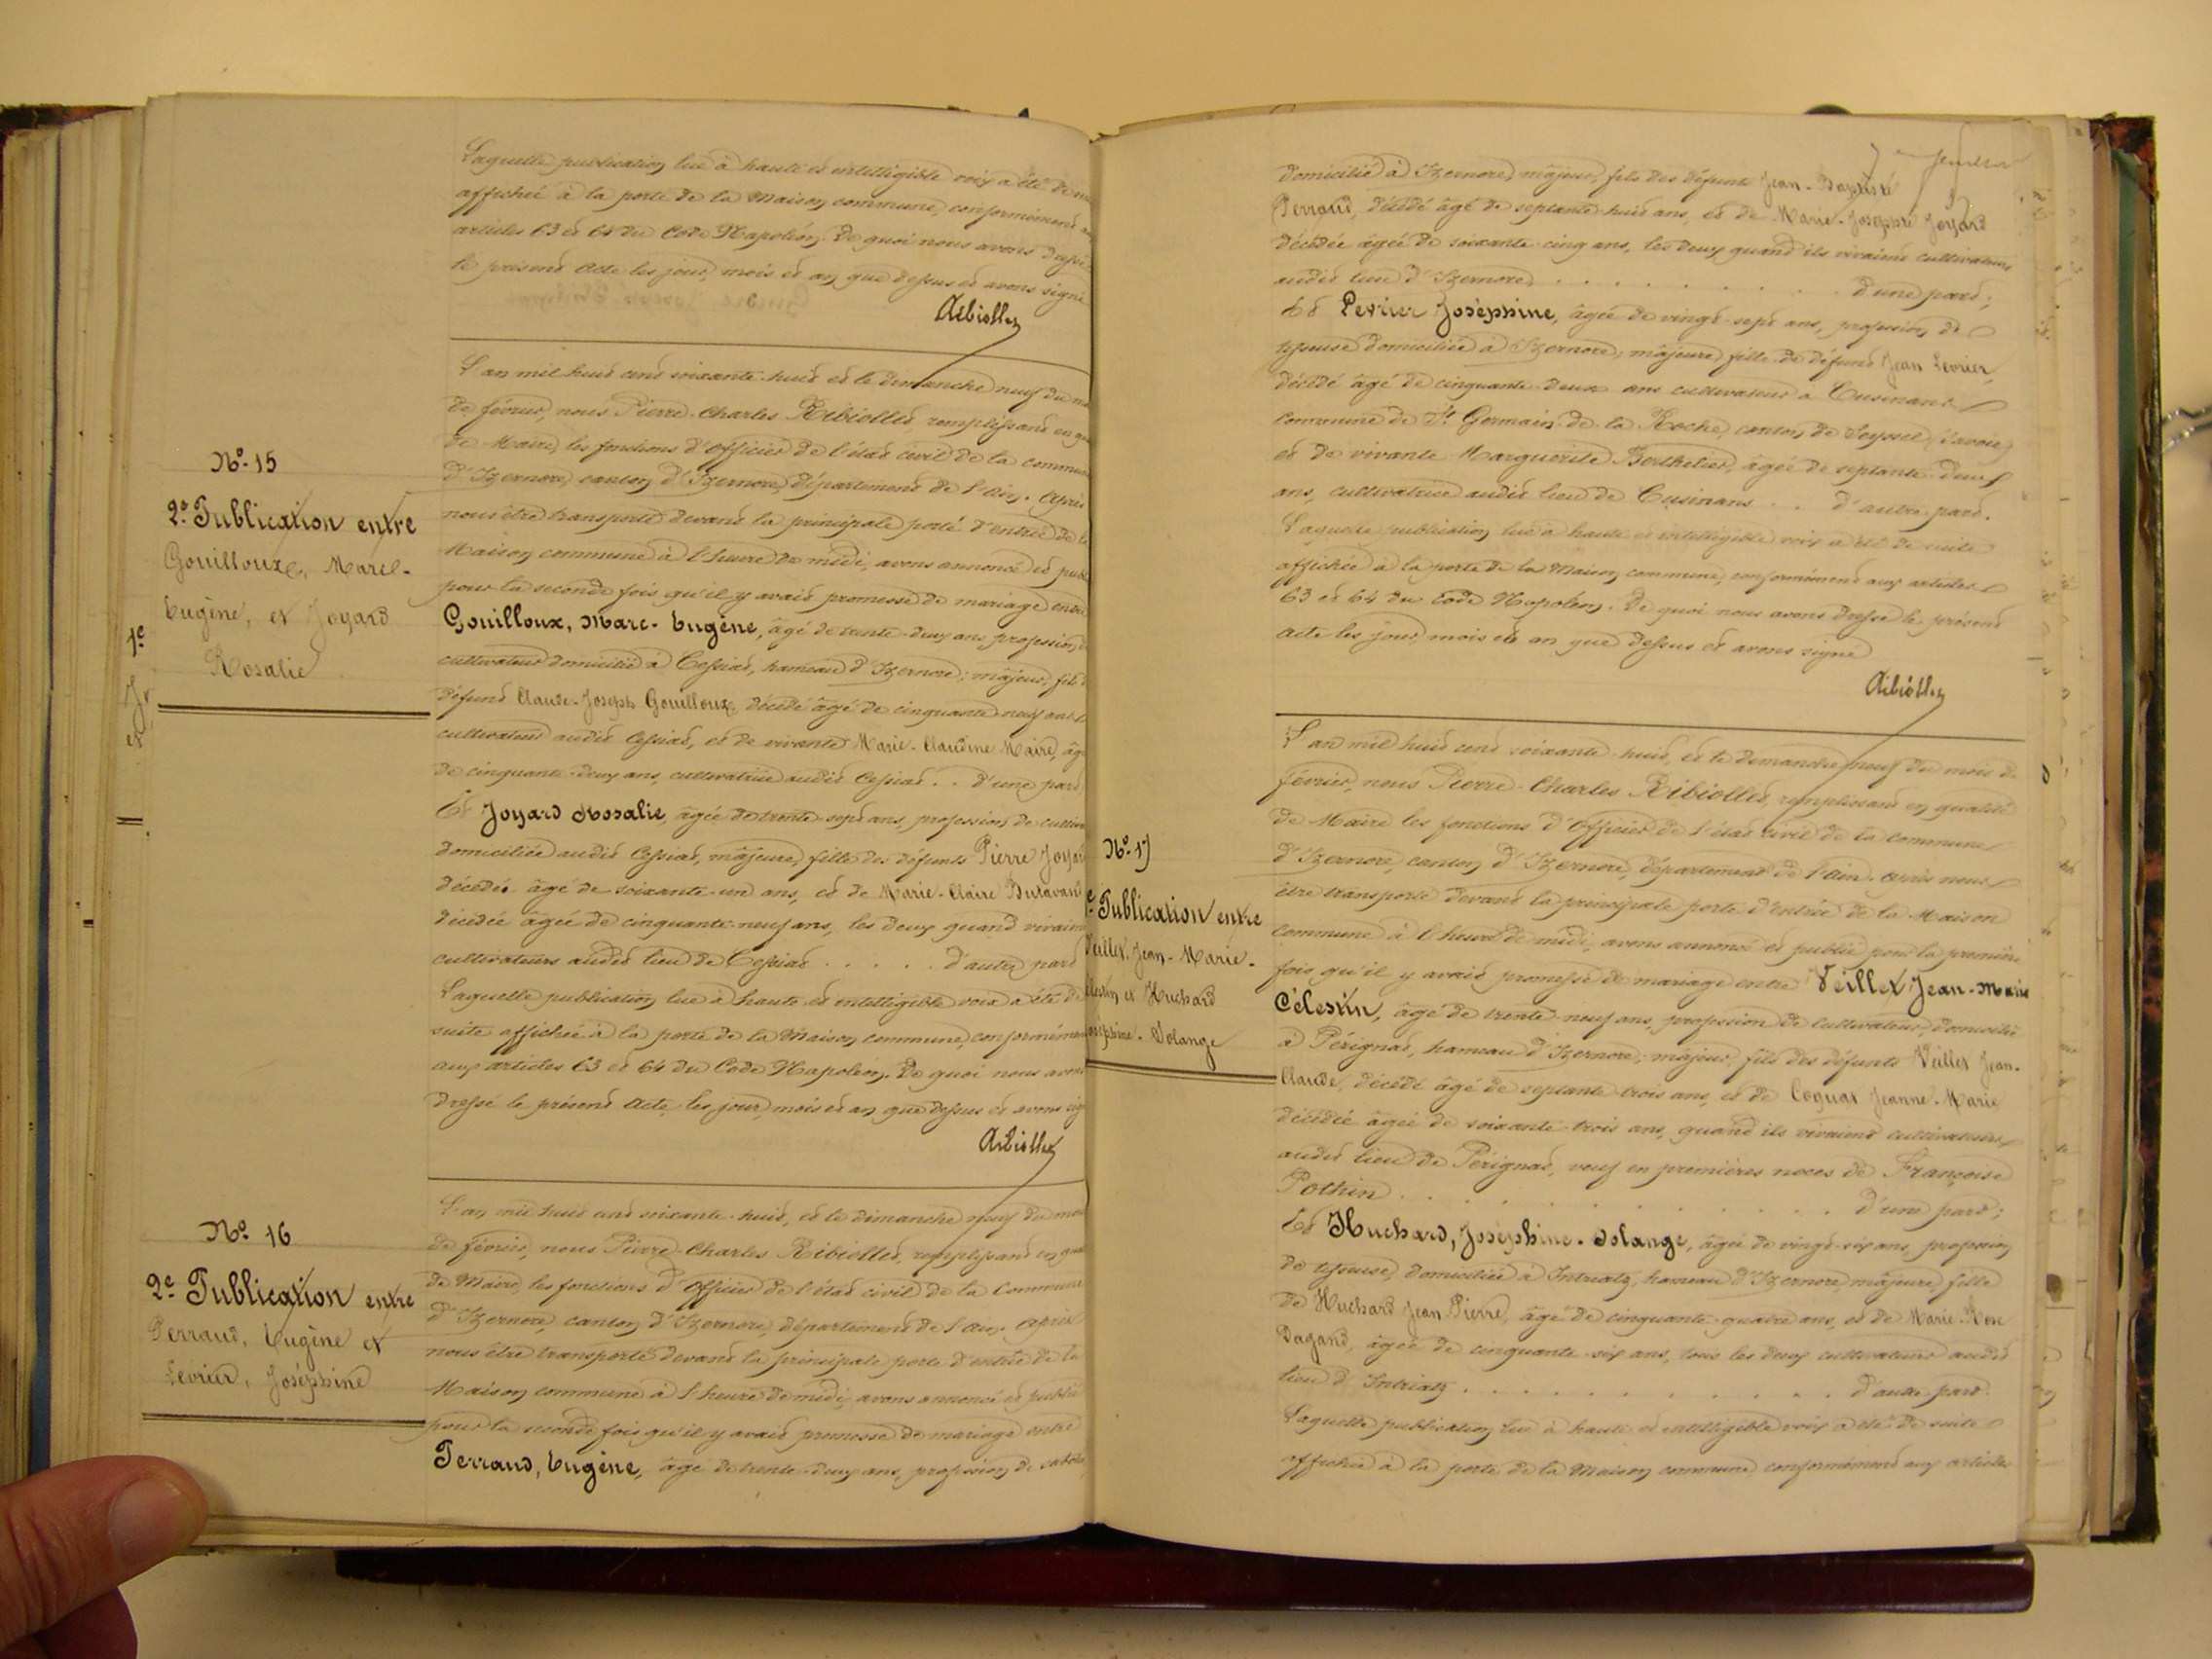 Laquelle publication lue à haute et intelligible voix a été de
affichée à la porte de la Maison commune, conformément
articles 63 et 64 du Code Napoléon. De quoi nous avons dressé
le présent Acte les jour, mois et an que dessus et avons signé
Ribiollet
No. 15
2e Publication entre
Gouilloux, Marc-
Eugène, et Joyard
Rosalie
L'an mil huit cent soixante-huit et le dimanche neuf du
de février, nous Pierre-Charles Ribiollet, remplissant en
de Maire, les fonctions d'Officier de l'état civil de la commune
d'Izernore, canton d'Izernore, département de l'Ain. Après
nous être transporté devant la principale porte d'entrée de la
Maison commune à l'heure de midi, avons annoncé et
pour la seconde fois qu'il y avait promesse de mariage entre
Gouilloux, Marc-Eugène, âgé de trente-deux ans, profession
cultivateur domicilié à Cessiat, hameau d'Izernore; majeur, fils
défunt Claude-Joseph Gouilloux, décédé âgé de cinquante-neuf ans
cultivateur audit Cessiat, et de vivante Marie-Claudine Maire,
de cinquante-deux ans, cultivatrice audit Cessiat . . d'une part
Et Joyard Rosalie, âgée de trente-sept ans, profession de
domiciliée audit Cessiat, majeure, fille des défunts Pierre
décédé âgé de soixante-un ans, et de Marie-Claire
décédée âgée de cinquante-neuf ans, les deux quand
cultivateurs audit lieu de Cessiat . . . . . d'autre part
Laquelle publication, lue à haute et intelligible voix a été de
suite affichée à la porte de la Maison commune, conformément
aux articles 63 et 64 du Code Napoléon. De quoi nous avons
dressé le présent Acte, les jour, mois et an que dessus et avons
Ribiollet
No. 16
2e Publication entre
Perraud, Eugène et
Levrier, Joséphine
L'an mil huit cent soixante-huit, et le dimanche neuf du
de février, nous Pierre-Charles Ribiollet, remplissant en
de Maire, les fonctions d'Officier de l'état civil de la Commune
d'Izernore, canton d'Izernore, département de l'Ain. Après
nous être transporté devant la principale porte d'entrée de la
Maison commune à l'heure de midi, avons annoncé et publié
pour la seconde fois qu'il y avait promesse de mariage entre
Perraud, Eugène, âgé de trente-deux ans, profession de
domicilié à Izernore, majeur, fils des défunts Jean-Baptiste
Perraud, décédé âgé de septante-huit ans, et de Marie-Josephte Joyard
décédée âgée de soixante-cinq ans, les deux quand ils vivaient cultivateurs
audit lieu d'Izernore . . . . . . . . . d'une part;
Et Levrier Joséphine, âgée de vingt-sept ans, profession de
tisseuse domiciliée à Izernore, majeure, fille de défunt Jean Levrier,
décédé âgé de cinquante-deux ans cultivateur à Cusinans
commune de St. Germain-de-la-Roche, canton de Seyssel (Savoie)
et de vivante Marguerite Berthelier, âgée de septante-deux
ans, cultivatrice audit lieu de Cusinans . . d'autre part.
Laquelle publication, lue à haute et intelligible voix a été de suite
affichée à la porte de la Maison commune, conformément aux articles
63 et 64 du Code Napoléon. De quoi nous avons dressé le présent
Acte les jour, mois et an que dessus et avons signé
Ribiollet
No. 17
Publication entre
Veillet, Jean-Marie-
Célestin et Huchard
Joséphine-Solange
L'an mil huit cent soixante-huit, et le dimanche neuf du mois de
février, nous Pierre-Charles Ribiollet, remplissant en qualité
de Maire les fonctions d'Officier de l'état civil de la commune
d'Izernore, canton d'Izernore, département de l'Ain. Après nous
être transporté devant la principale porte d'entrée de la Maison
commune à l'heure de midi, avons annoncé et publié pour la première
fois qu'il y avait promesse de mariage entre Veillet Jean-Marie
Célestin, âgé de trente-neuf ans, profession de cultivateur, domicilié
à Pérignat, hameau d'Izernore; majeur, fils des défunts Veillet Jean-
Claude, décédé âgé de septante-trois ans, et de Coquat Jeanne-Marie
décédée âgée de soixante-trois ans, quand ils vivaient cultivateurs
audit lieu de Pérignat, veuf en premières noces de Françoise
Pothin . . . . . . . . . . d'une part;
Et Huchard, Joséphine-Solange, âgée de vingt-six ans, profession
de tisseuse, domiciliée à Intriatz, hameau d'Izernore, majeure, fille
de Huchard Jean Pierre, âgé de cinquante-quatre ans, et de Marie-Rose
Dagand, âgée de cinquante-six ans, tous les deux cultivateurs audit
lieu d'Intriatz . . . . . . . . . d'autre part.
Laquelle publication, lue à haute et intelligible voix a été de suite
affichée à la porte de la Maison commune conformément aux articles